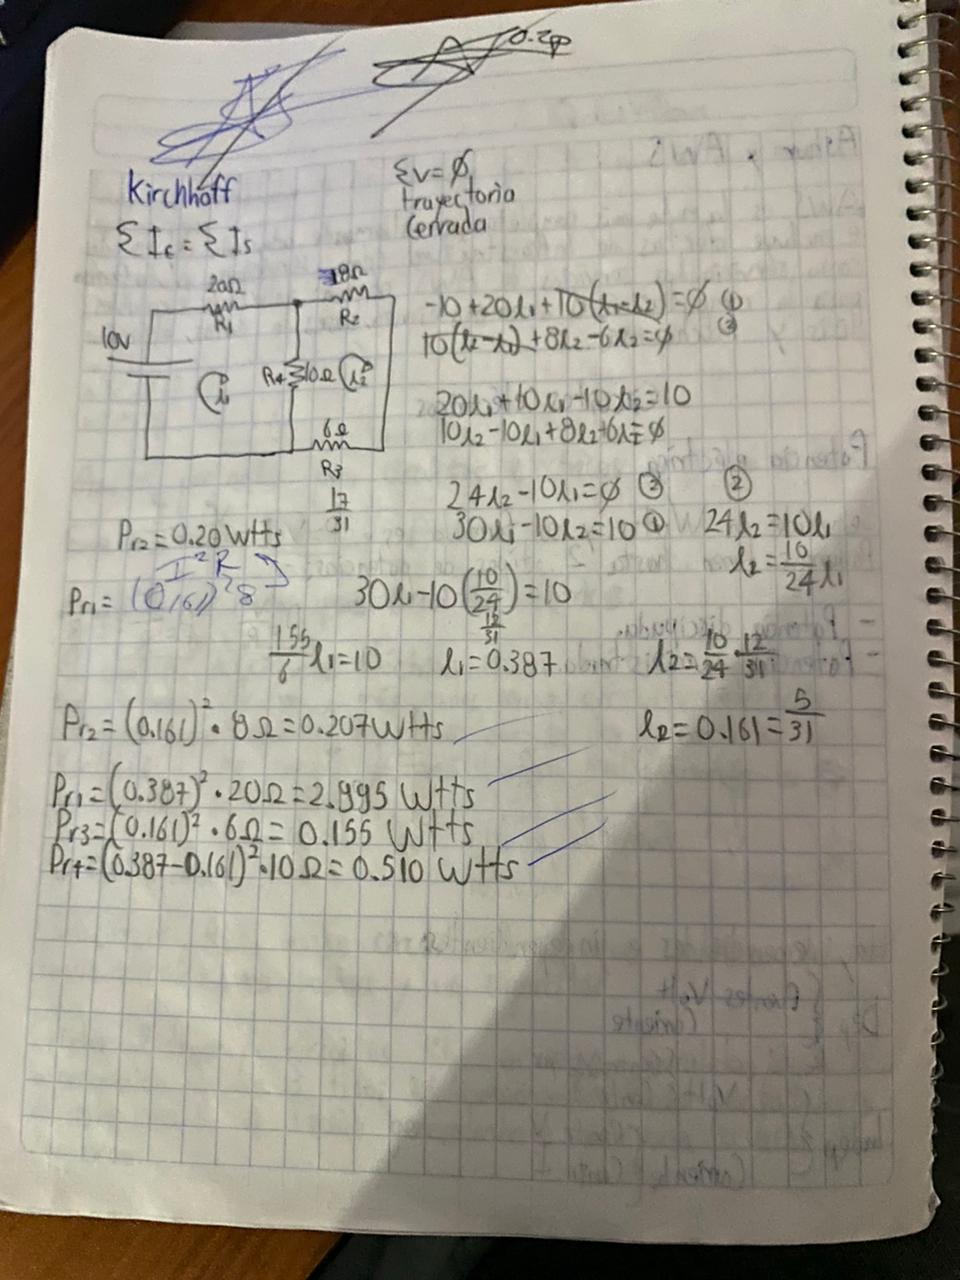 0.2p
Kirchhoff
ΣV=∅
trayectoria
Cerrada
ΣIe=ΣIs
20Ω
R1
8Ω
R2
10V
R4 10Ω
i1
i2
6Ω
R3
-10+20i1+10(i1-i2)=∅ ①
10(i2-i1)+8i2-6i2=∅ ②
20i1+10i1-10i2=10
10i2-10i1+8i2+6i2=∅
24i2-10i1=∅ ② ②
17/31
30i1-10i2=10 ① 24i2=10i1
Pr2=0.20 Wtts
i2=10/24 i1
I²R
Pr1=(0.161)²8
30i1-10(10/24)=10
12/31
155/6 i1=10 i1=0.387 i2=10/24·12/31
Pr2=(0.161)²·8Ω=0.207Wtts
i2=0.161=5/31
Pr1=(0.387)²·20Ω=2.995 Wtts
Pr3=(0.161)²·6Ω=0.155 Wtts
Pr4=(0.387-0.161)²·10Ω=0.510 Wtts